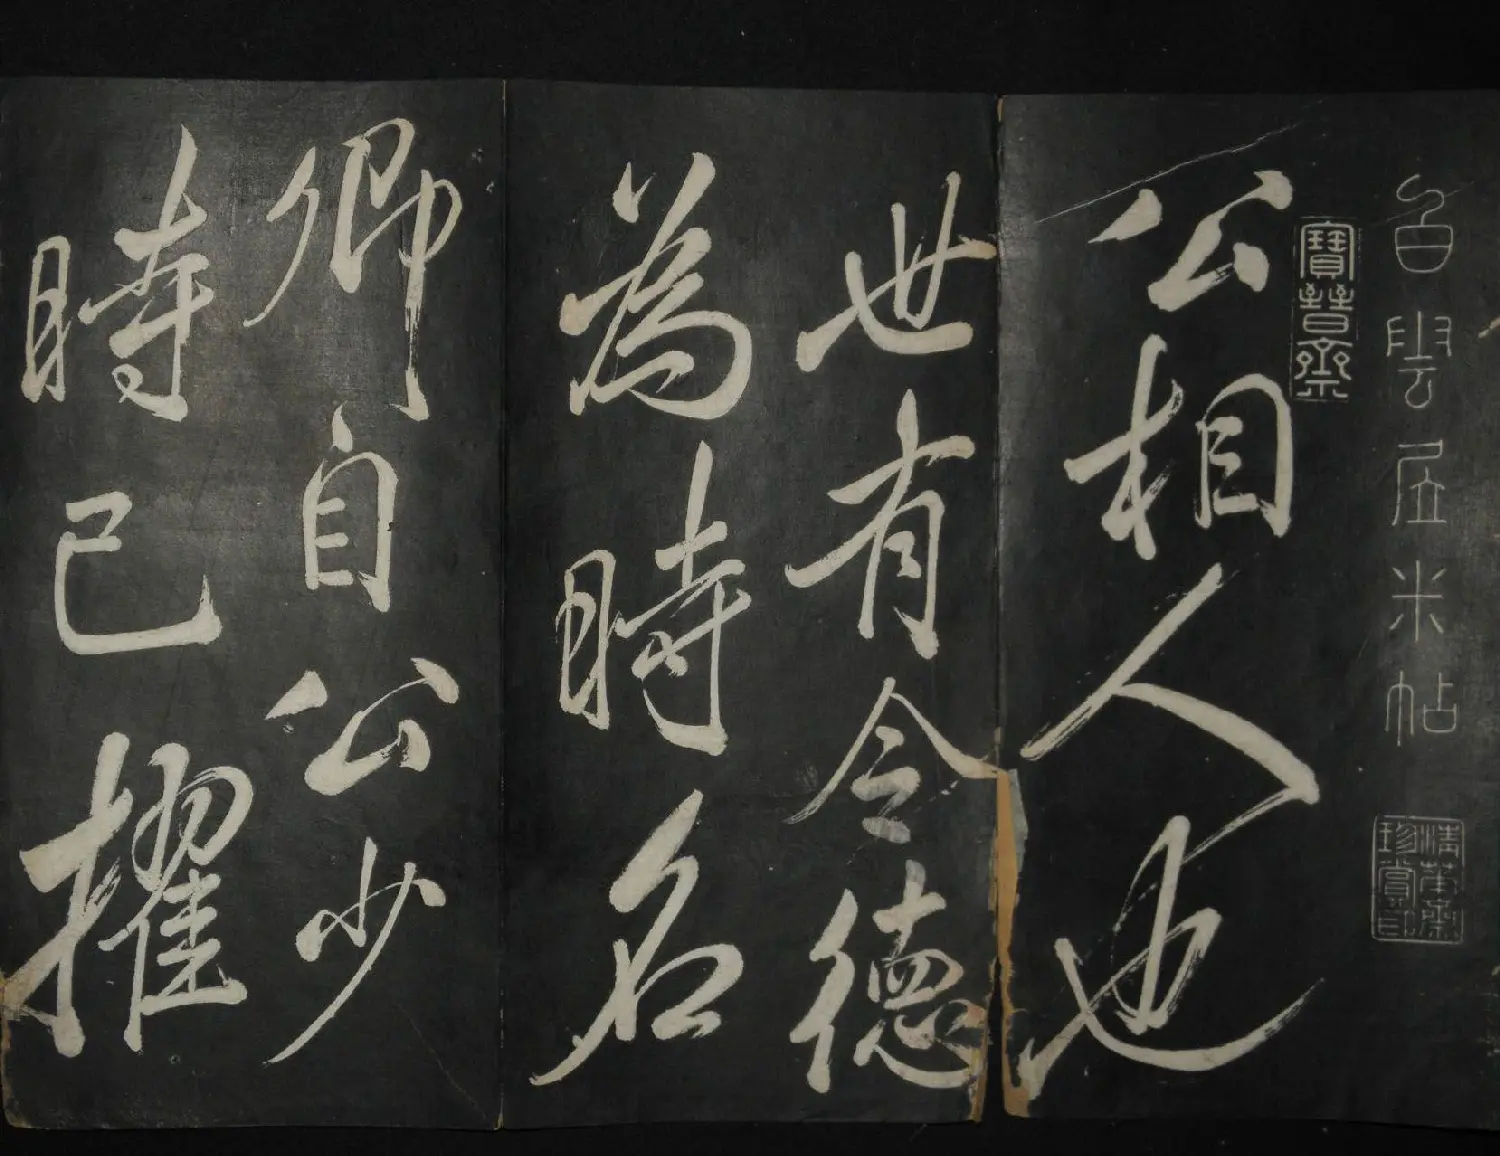 白雲居米帖
寶晉齋
珍賞印
公相人也
世有令德
為時名
卿自公少
時已擢